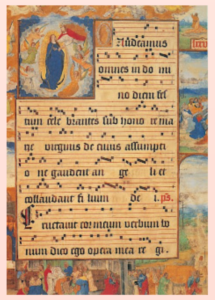 Gaudeamus
omnes in do mi
no diem fes
tum cele brantes sub hono re ma
ri e virginis de cuius assumpti
o ne gaudent an ge li et
collaudant fi lium de i. ps.
Eructavit cor meum verbum bo
num dico ego opera mea re gi.